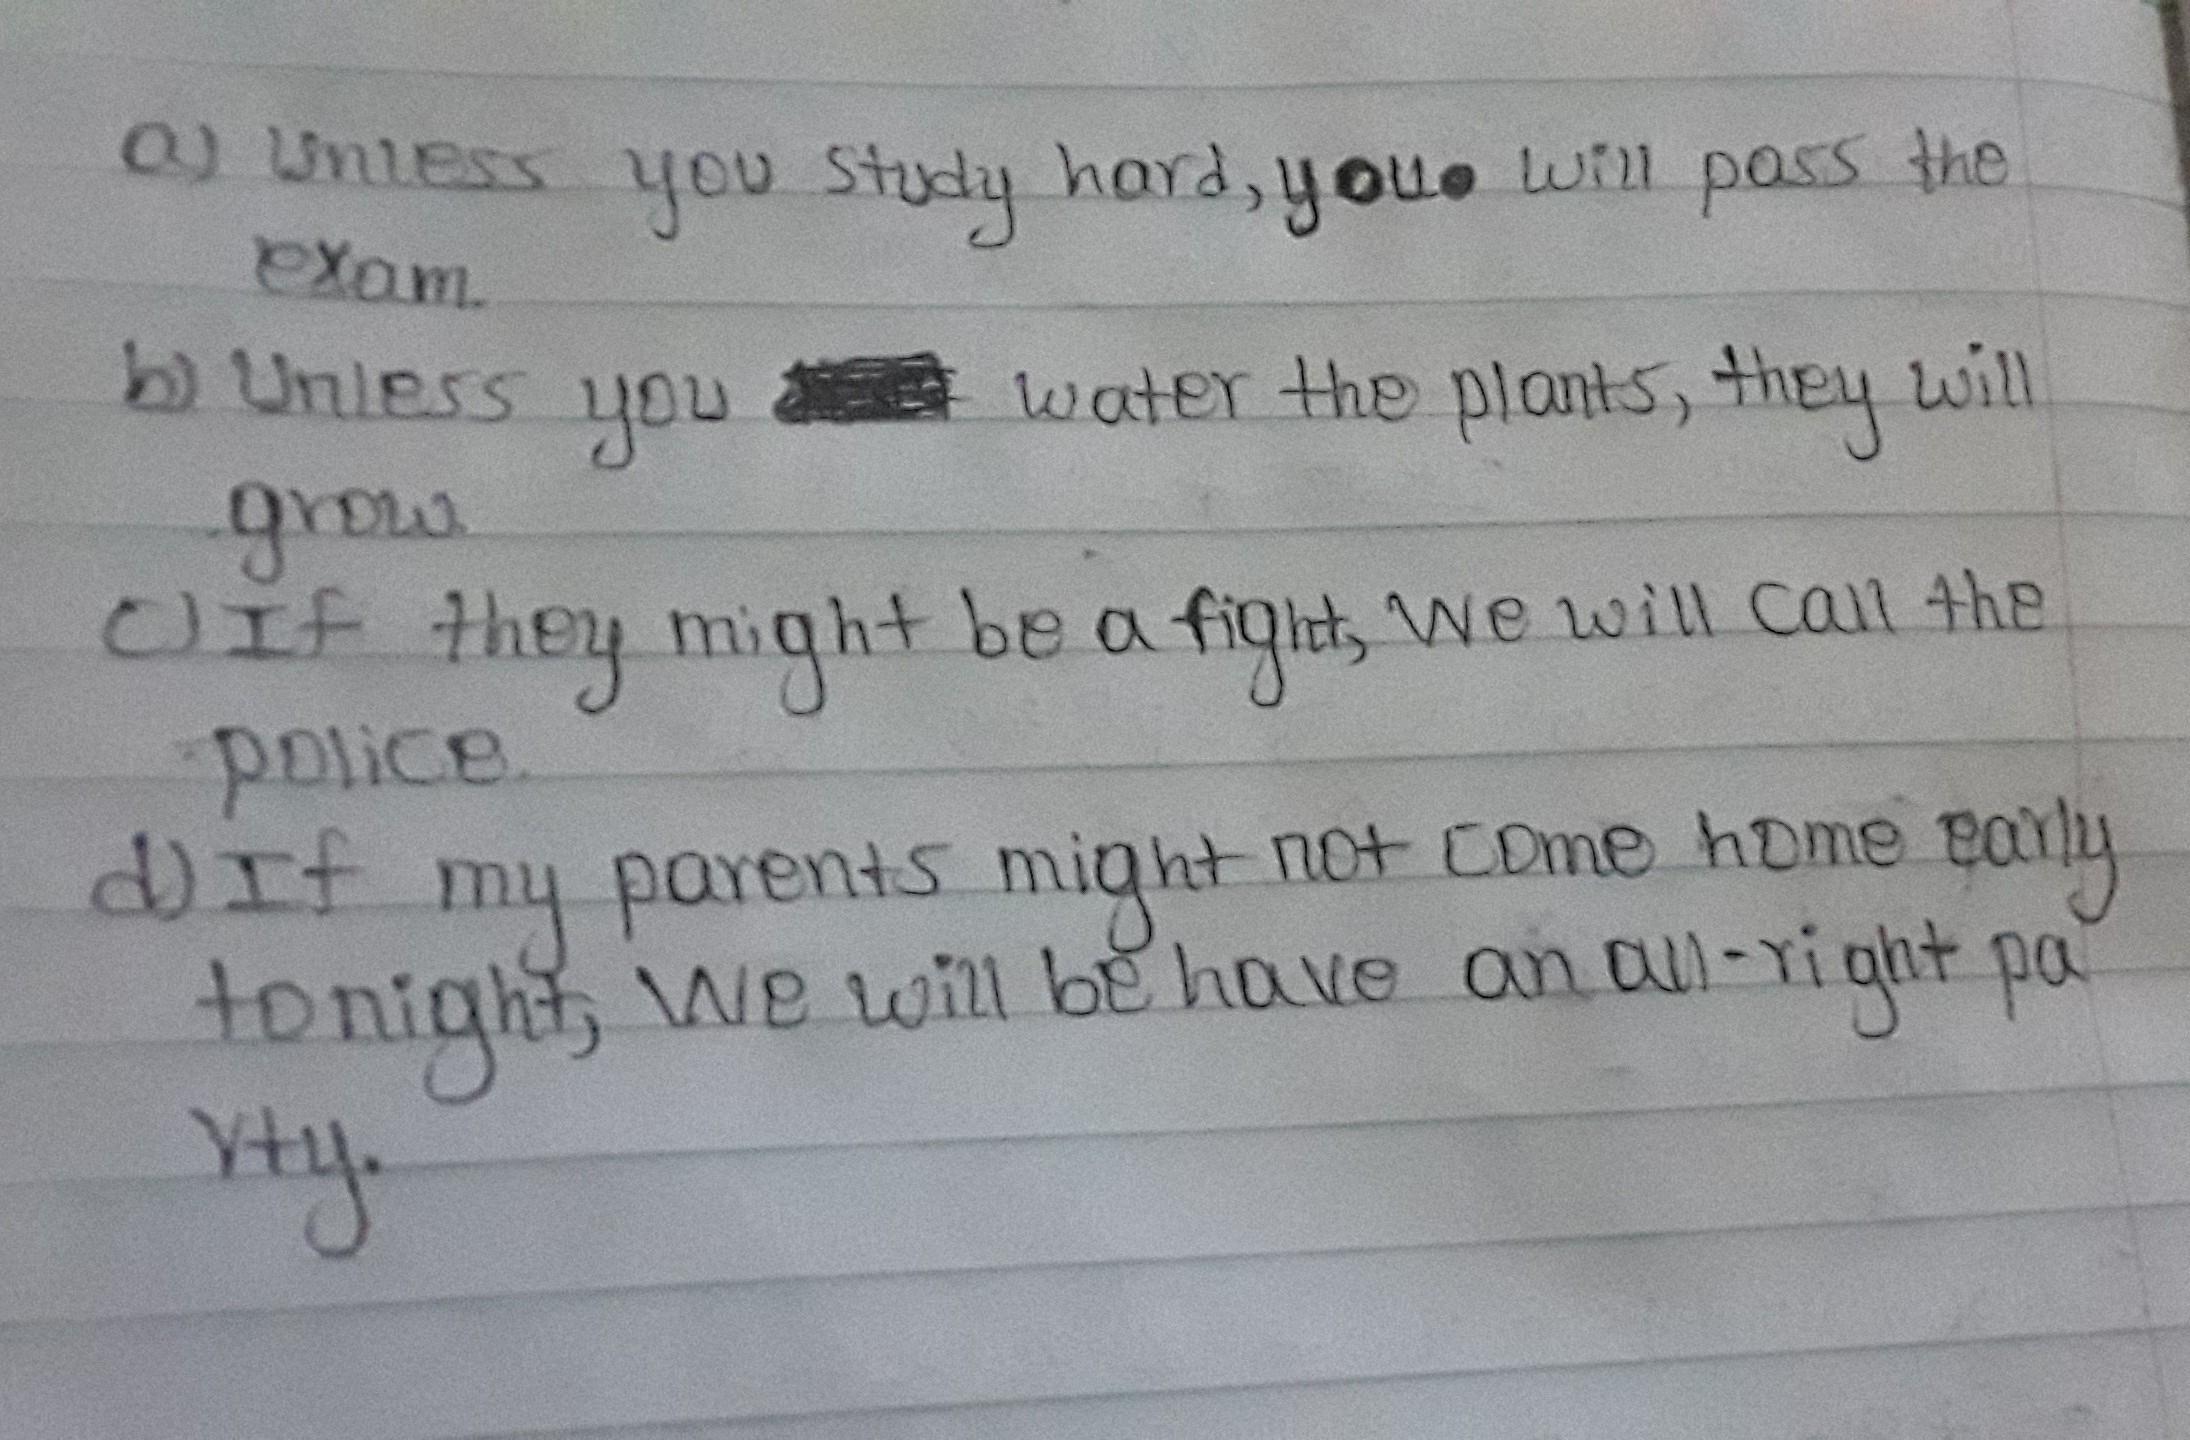 a) Unless you study hard, you will pass the
exam.
b) Unless you water the plants, they will
grow.
c) If they might be a fight, We will call the
police.
d) If my parents might not come home early
tonight, We will be have an all-right pa
rty.